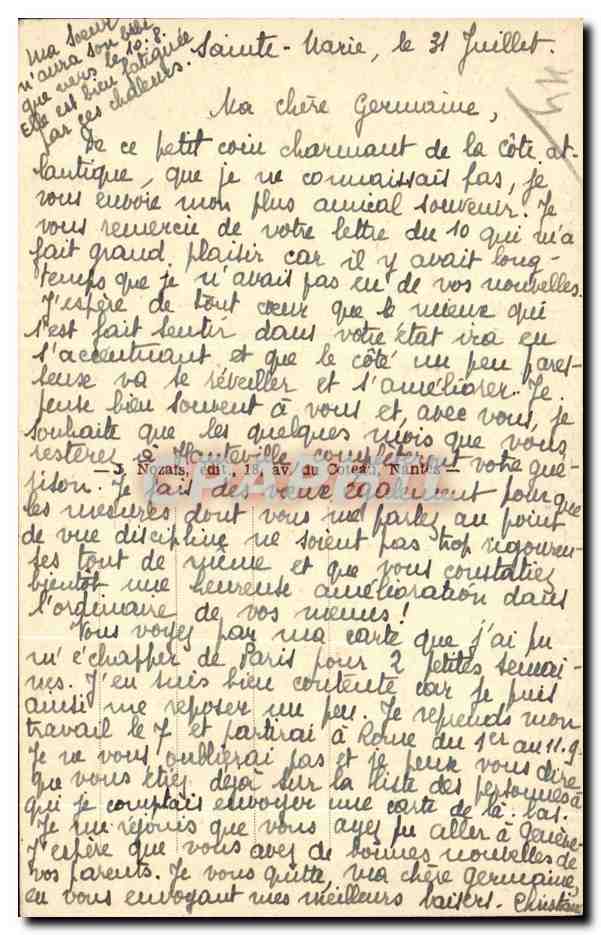 Ma Soeur
n'aura son bébé
que vers le 10.8.
Elle est bien fatiguée
par ces chaleurs.
Sainte-Marie, le 31 Juillet.
Ma chère Germaine,
De ce petit coin charmant de la côte at-
lantique, que je ne connaissais pas, je
vous envoie mon plus amical souvenir. Je
vous remercie de votre lettre du 10 qui m'a
fait grand plaisir car il y avait long-
temps que je n'avais pas eu de vos nouvelles.
J'espère de tout coeur que le mieux qui
s'est fait sentir dans votre état ira en
s'accentuant et que le côté un peu pares-
seux va se réveiller et s'améliorer. Je
pense bien souvent à vous et, avec vous, je
souhaite que les quelques mois que vous
resterez à Hauteville complètent votre gué-
— J. Nozais, édit., 18, av. du Coteau, Nantes —
rison. Je fais des voeux également pour que
les mesures dont vous me parlez au point
de vue discipline ne soient pas trop rigoureu-
ses tout de même et que vous constatiez
bientôt une heureuse amélioration dans
l'ordinaire de vos menus !
Vous voyez par ma carte que j'ai pu
m'échapper de Paris pour 2 petites semai-
nes. J'en suis bien contente car je puis
ainsi me reposer un peu. Je reprends mon
travail le 7 et partirai à Rome du 1er au 11.9.
Je ne vous oublierai pas et je peux vous dire
que vous étiez déjà sur la liste des personnes à
qui je comptais envoyer une carte de là-bas.
Je me réjouis que vous ayez pu aller à Genève.
J'espère que vous avez de bonnes nouvelles de
vos parents. Je vous quitte, ma chère Germaine,
en vous envoyant mes meilleurs baisers. Christiane